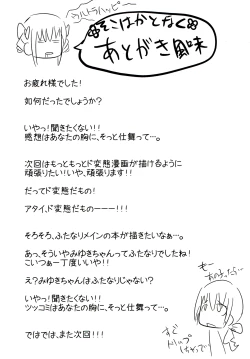 ウルトラハッピー
そこはかとなく
あとがき風味
お疲れ様でした！
如何だったでしょうか？
いやっ！聞きたくない！！
感想はあなたの胸に、そっと仕舞って…。
次回はもっともっとド変態漫画が描けるように
頑張りたい！いや、頑張ります！！
だってド変態だもの！
アタイ、ド変態だものーーー！！！
そろそろ、ふたなりメインの本が描きたいなぁ…。
あっ、そういやみゆきちゃんってふたなりでしたね！
こいつぁー丁度いいや！！
え？みゆきちゃんはふたなりじゃない？
いやっ！聞きたくない！！
ツッコミはあなたの胸に、そっと仕舞って…。
ではでは、また次回！！！